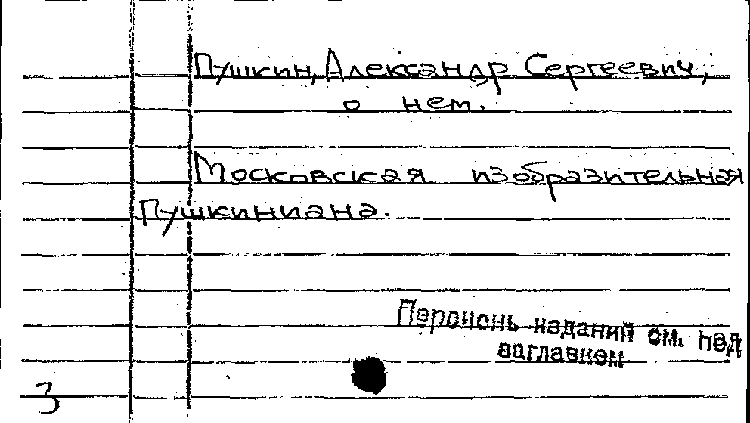 Пушкин, Александр Сергеевич,
о нем.
Московская изобразительная
Пушкиниана.
Перечень изданий см. под
заглавием
3